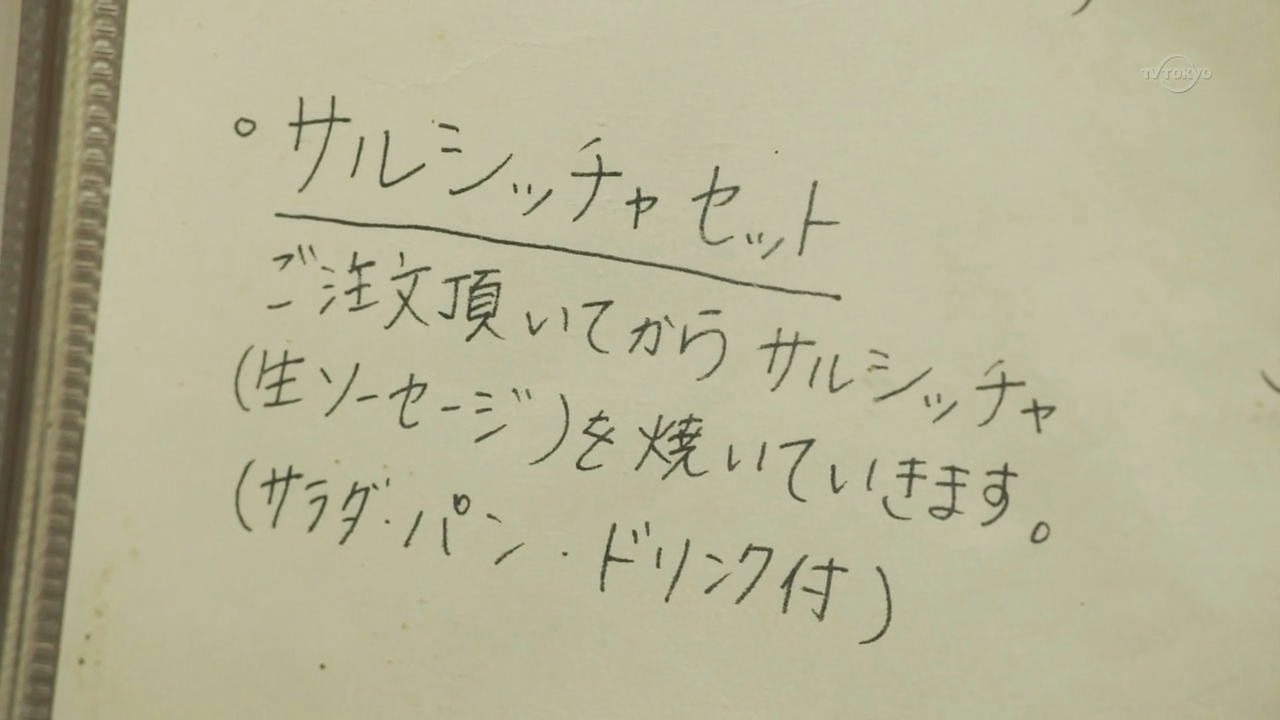 TV TOKYO
。サルシッチャセット
ご注文頂いてからサルシッチャ
(生ソーセージ)を焼いていきます。
(サラダ・パン・ドリンク付)